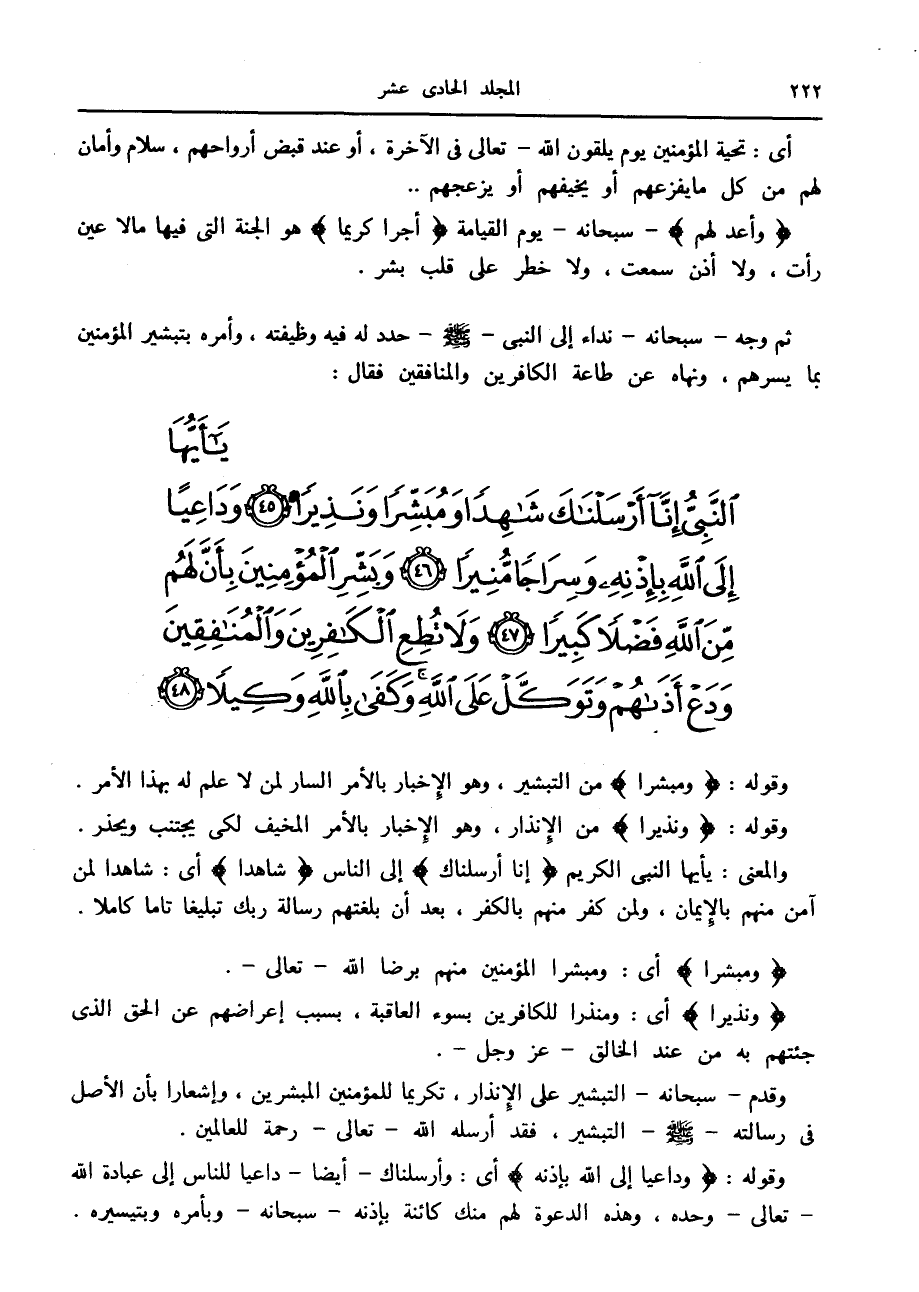 ٢٢٢ المجلد الحادى عشر
أى : تحية المؤمنين يوم يلقون الله – تعالى فى الآخرة ، أو عند قبض أرواحهم ، سلام وأمان
لهم من كل مايفزعهم أو يخيفهم أو يزعجهم ..
﴿ وأعد لهم ﴾ – سبحانه – يوم القيامة ﴿ أجرا كريما ﴾ هو الجنة التى فيها مالا عين
رأت ، ولا أذن سمعت ، ولا خطر على قلب بشر .
ثم وجه – سبحانه – نداء إلى النبى – ﷺ – حدد له فيه وظيفته ، وأمره بتبشير المؤمنين
بما يسرهم ، ونهاه عن طاعة الكافرين والمنافقين فقال :
يَٰٓأَيُّهَا
ٱلنَّبِىُّ إِنَّآ أَرْسَلْنَٰكَ شَٰهِدًا وَمُبَشِّرًا وَنَذِيرًا ﴿٤٥﴾ وَدَاعِيًا
إِلَى ٱللَّهِ بِإِذْنِهِۦ وَسِرَاجًا مُّنِيرًا ﴿٤٦﴾ وَبَشِّرِ ٱلْمُؤْمِنِينَ بِأَنَّ لَهُم
مِّنَ ٱللَّهِ فَضْلًا كَبِيرًا ﴿٤٧﴾ وَلَا تُطِعِ ٱلْكَٰفِرِينَ وَٱلْمُنَٰفِقِينَ
وَدَعْ أَذَىٰهُمْ وَتَوَكَّلْ عَلَى ٱللَّهِ ۚ وَكَفَىٰ بِٱللَّهِ وَكِيلًا ﴿٤٨﴾
وقوله : ﴿ ومبشرا ﴾ من التبشير ، وهو الإخبار بالأمر السار لمن لا علم له بهذا الأمر .
وقوله : ﴿ ونذيرا ﴾ من الإنذار ، وهو الإخبار بالأمر المخيف لكى يجتنب ويحذر .
والمعنى : يأيها النبى الكريم ﴿ إنا أرسلناك ﴾ إلى الناس ﴿ شاهدا ﴾ أى : شاهدا لمن
آمن منهم بالإيمان ، ولمن كفر منهم بالكفر ، بعد أن بلغتهم رسالة ربك تبليغا تاما كاملا .
﴿ ومبشرا ﴾ أى : ومبشرا المؤمنين منهم برضا الله – تعالى – .
﴿ ونذيرا ﴾ أى : ومنذرا للكافرين بسوء العاقبة ، بسبب إعراضهم عن الحق الذى
جئتهم به من عند الخالق – عز وجل – .
وقدم – سبحانه – التبشير على الإنذار ، تكريما للمؤمنين المبشرين ، وإشعارا بأن الأصل
فى رسالته – ﷺ – التبشير ، فقد أرسله الله – تعالى – رحمة للعالمين .
وقوله : ﴿ وداعيا إلى الله بإذنه ﴾ أى : وأرسلناك – أيضا – داعيا للناس إلى عبادة الله
– تعالى – وحده ، وهذه الدعوة لهم منك كائنة بإذنه – سبحانه – وبأمره وبتيسيره .